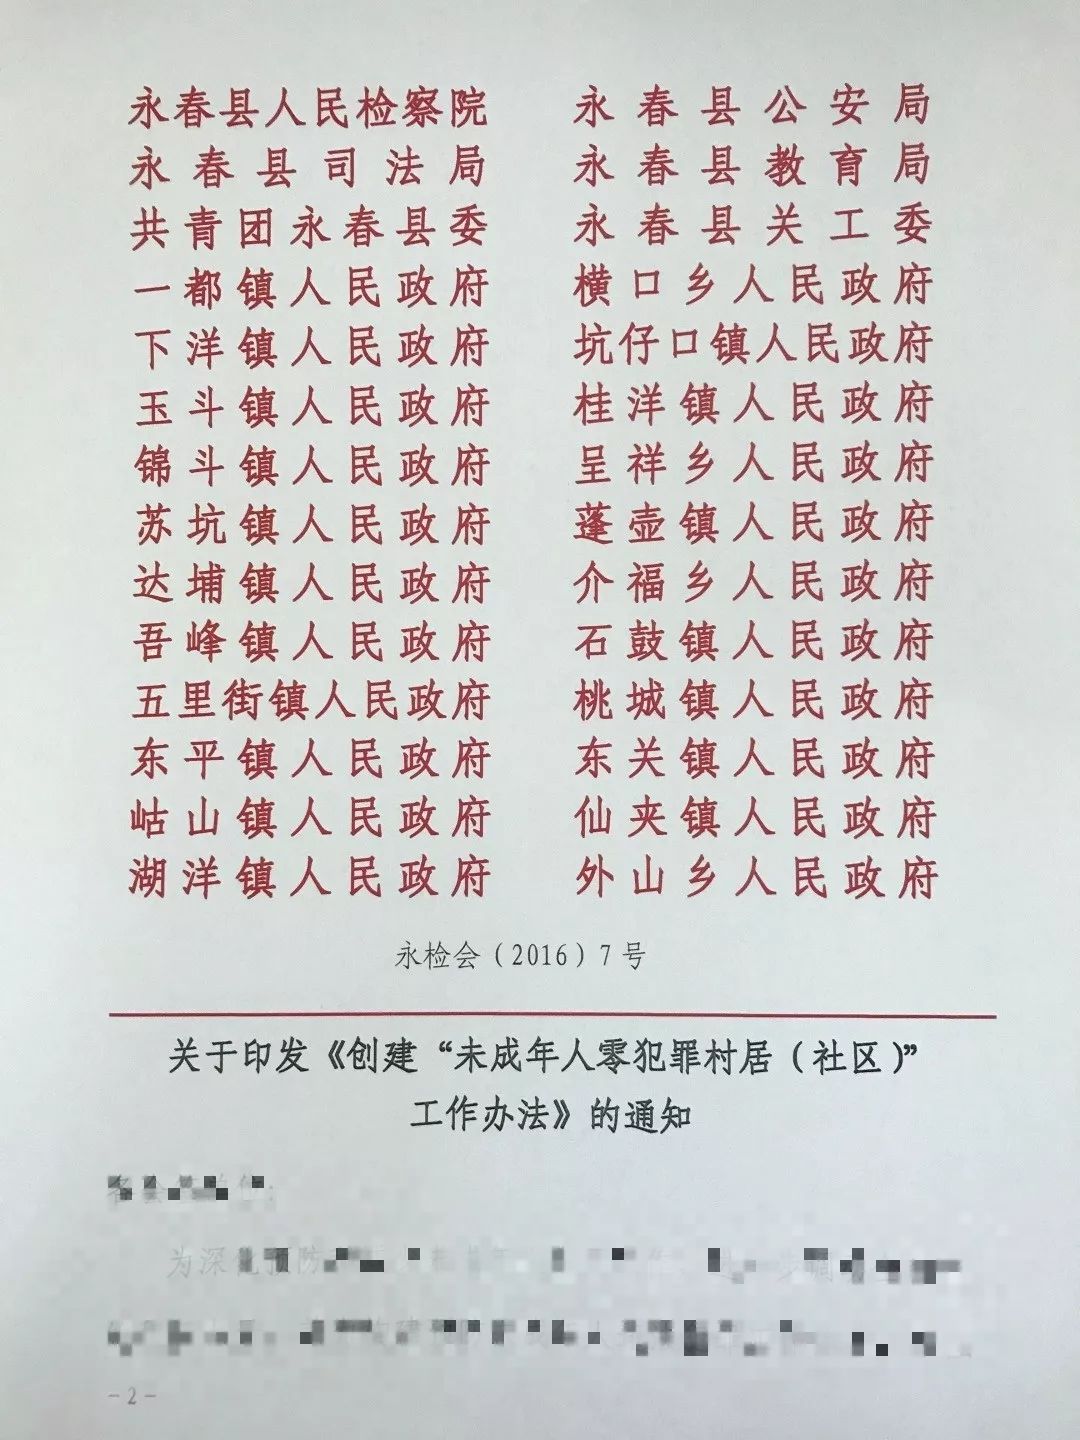 永春县人民检察院 永春县公安局
永春县司法局 永春县教育局
共青团永春县委 永春县关工委
一都镇人民政府 横口乡人民政府
下洋镇人民政府 坑仔口镇人民政府
玉斗镇人民政府 桂洋镇人民政府
锦斗镇人民政府 呈祥乡人民政府
苏坑镇人民政府 蓬壶镇人民政府
达埔镇人民政府 介福乡人民政府
吾峰镇人民政府 石鼓镇人民政府
五里街镇人民政府 桃城镇人民政府
东平镇人民政府 东关镇人民政府
岵山镇人民政府 仙夹镇人民政府
湖洋镇人民政府 外山乡人民政府
永检会（2016）7号
关于印发《创建“未成年人零犯罪村居（社区）”
工作办法》的通知
为深化预防
-2-